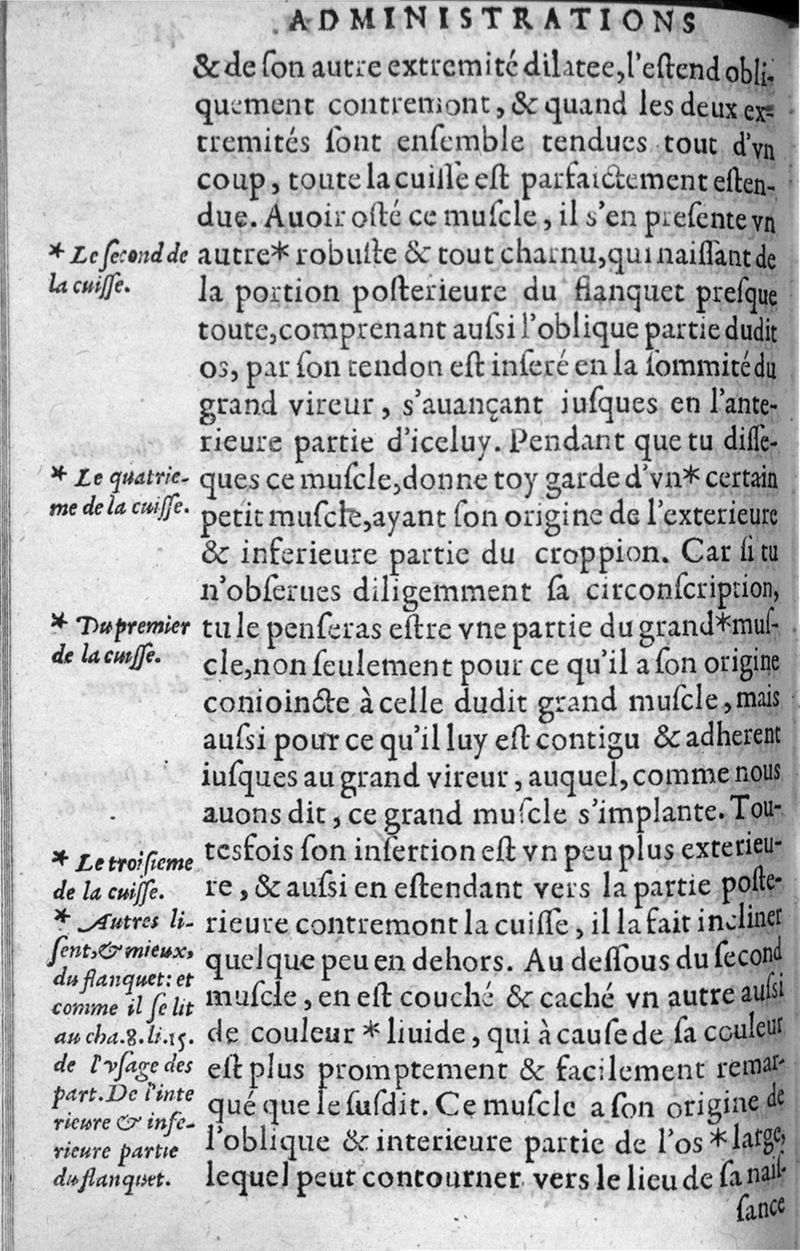 ADMINISTRATIONS
& de ſon autre extremité dilatee, l'eſtend obli-
quement contremont, & quand les deux ex-
tremités ſont enſemble tendues tout d'vn
coup, toute la cuiſſe eſt parfaictement eſten-
due. Auoir oſté ce muſcle, il s'en preſente vn
autre* robuſte & tout charnu, qui naiſſant de
la portion poſterieure du flanquet preſque
toute, comprenant auſsi l'oblique partie dudit
os, par ſon tendon eſt inſeré en la ſommité du
grand vireur, s'auançant iuſques en l'ante-
rieure partie d'iceluy. Pendant que tu diſſe-
ques ce muſcle, donne toy garde d'vn* certain
petit muſcle, ayant ſon origine de l'exterieure
& inferieure partie du croppion. Car ſi tu
n'obſerues diligemment ſa circonſcription,
tu le penſeras eſtre vne partie du grand*muſ-
cle, non ſeulement pour ce qu'il a ſon origine
conioincte à celle dudit grand muſcle, mais
auſsi pour ce qu'il luy eſt contigu & adherent
iuſques au grand vireur, auquel, comme nous
auons dit, ce grand muſcle s'implante. Tou-
tesfois ſon inſertion eſt vn peu plus exterieu-
re, & auſsi en eſtendant vers la partie poſte-
rieure contremont la cuiſſe, il la fait incliner
quelque peu en dehors. Au deſſous du ſecond
muſcle, en eſt couché & caché vn autre auſsi
de couleur * liuide, qui à cauſe de ſa couleur
eſt plus promptement & facilement remar-
qué que le ſuſdit. Ce muſcle a ſon origine de
l'oblique & interieure partie de l'os * large,
lequel peut contourner vers le lieu de ſa naiſ-
ſance
* Le ſecond de
la cuiſſe.
* Le quatrie-
me de la cuiſſe.
* Du premier
de la cuiſſe.
* Le troiſieme
de la cuiſſe.
* Autres li-
ſent, & mieux,
du flanquet: et
comme il ſe lit
au cha.8.li.15.
de l'vſage des
part. De l'inte
rieure & infe-
rieure partie
du flanquet.